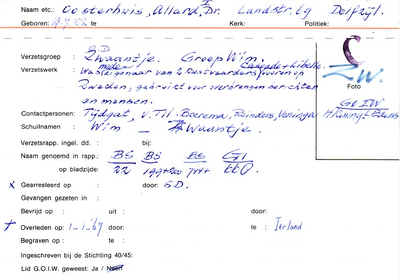 Naam etc.: Oosterhuis, Allard, Dr. Landstr. 69 Delfzijl.
Geboren: 19.7.02 te Kerk: Politiek:
O.D.
Verzetsgroep : Zwaantje. Groep Wim.
mede Libelle.
Verzetswerk : Was eigenaar van 2 kustvaarders, voeren op
Zweden, gebruikt voor overbrengen berichten
en mensen.
Zw.
Foto
G I W
Contactpersonen: Tijdgat, v. Til. Boerema, Reinders, Veninga
Schuilnamen : Wim - Zwaantje.
Verzetsrapp. ingel. dd. : bij:
Naam genoemd in rapp.: BS BS BS GI
op bladzijde: 22
x Gearresteerd op door: S.D.
Gevangen gezeten in :
Bevrijd op : uit : door:
† Overleden op : 1-1-'67 door: te : Ierland
Begraven op : te :
Ingeschreven bij de Stichting 40/45:
Lid G.O.I.W. geweest: Ja / Neen